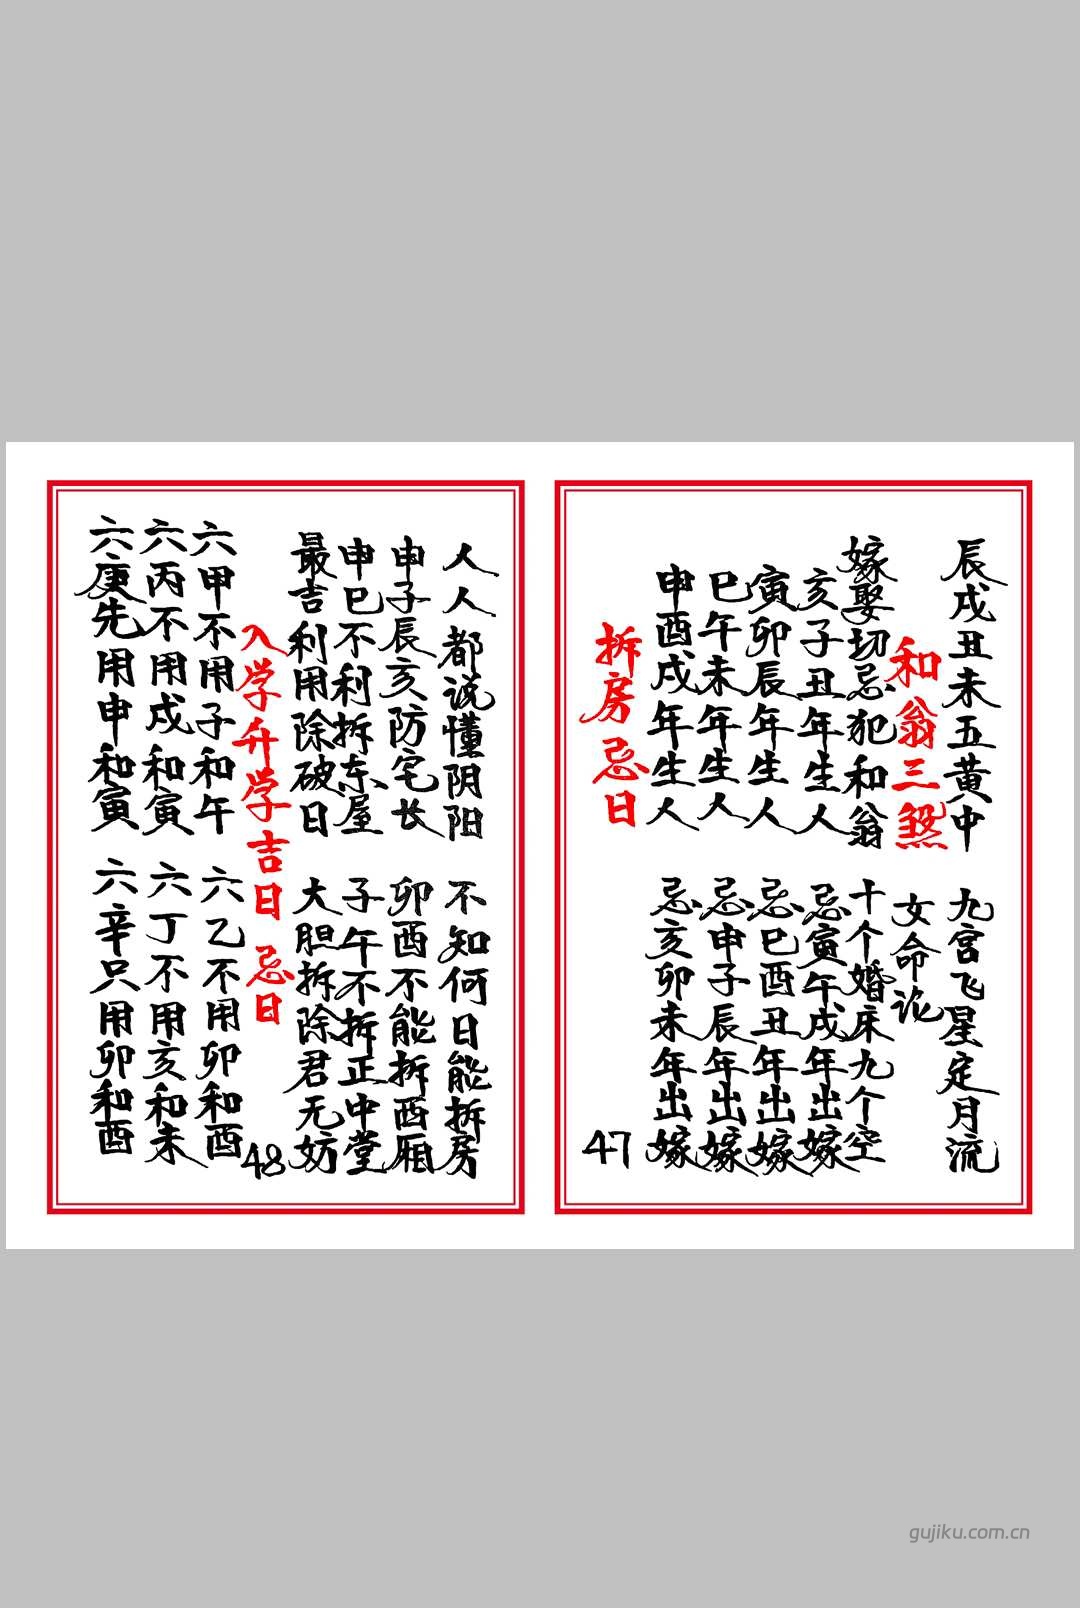 辰戌丑未五黄中 九宫飞星定月流
和翁三煞 女命论
嫁娶切忌犯和翁 十个婚床九个空
亥子丑年生人 忌寅午戌年出嫁
寅卯辰年生人 忌巳酉丑年出嫁
巳午未年生人 忌申子辰年出嫁
申酉戌年生人 忌亥卯未年出嫁
拆房忌日
47
人人都说懂阴阳 不知何日能拆房
申子辰亥防宅长 卯酉不能拆西厢
申巳不利拆东屋 子午不拆正中堂
最吉利用除破日 大胆拆除君无妨
入学升学吉日 忌日
48
六甲不用子和午 六乙不用卯和酉
六丙不用戌和寅 六丁不用亥和未
六庚先用申和寅 六辛只用卯和酉
gujiku.com.cn